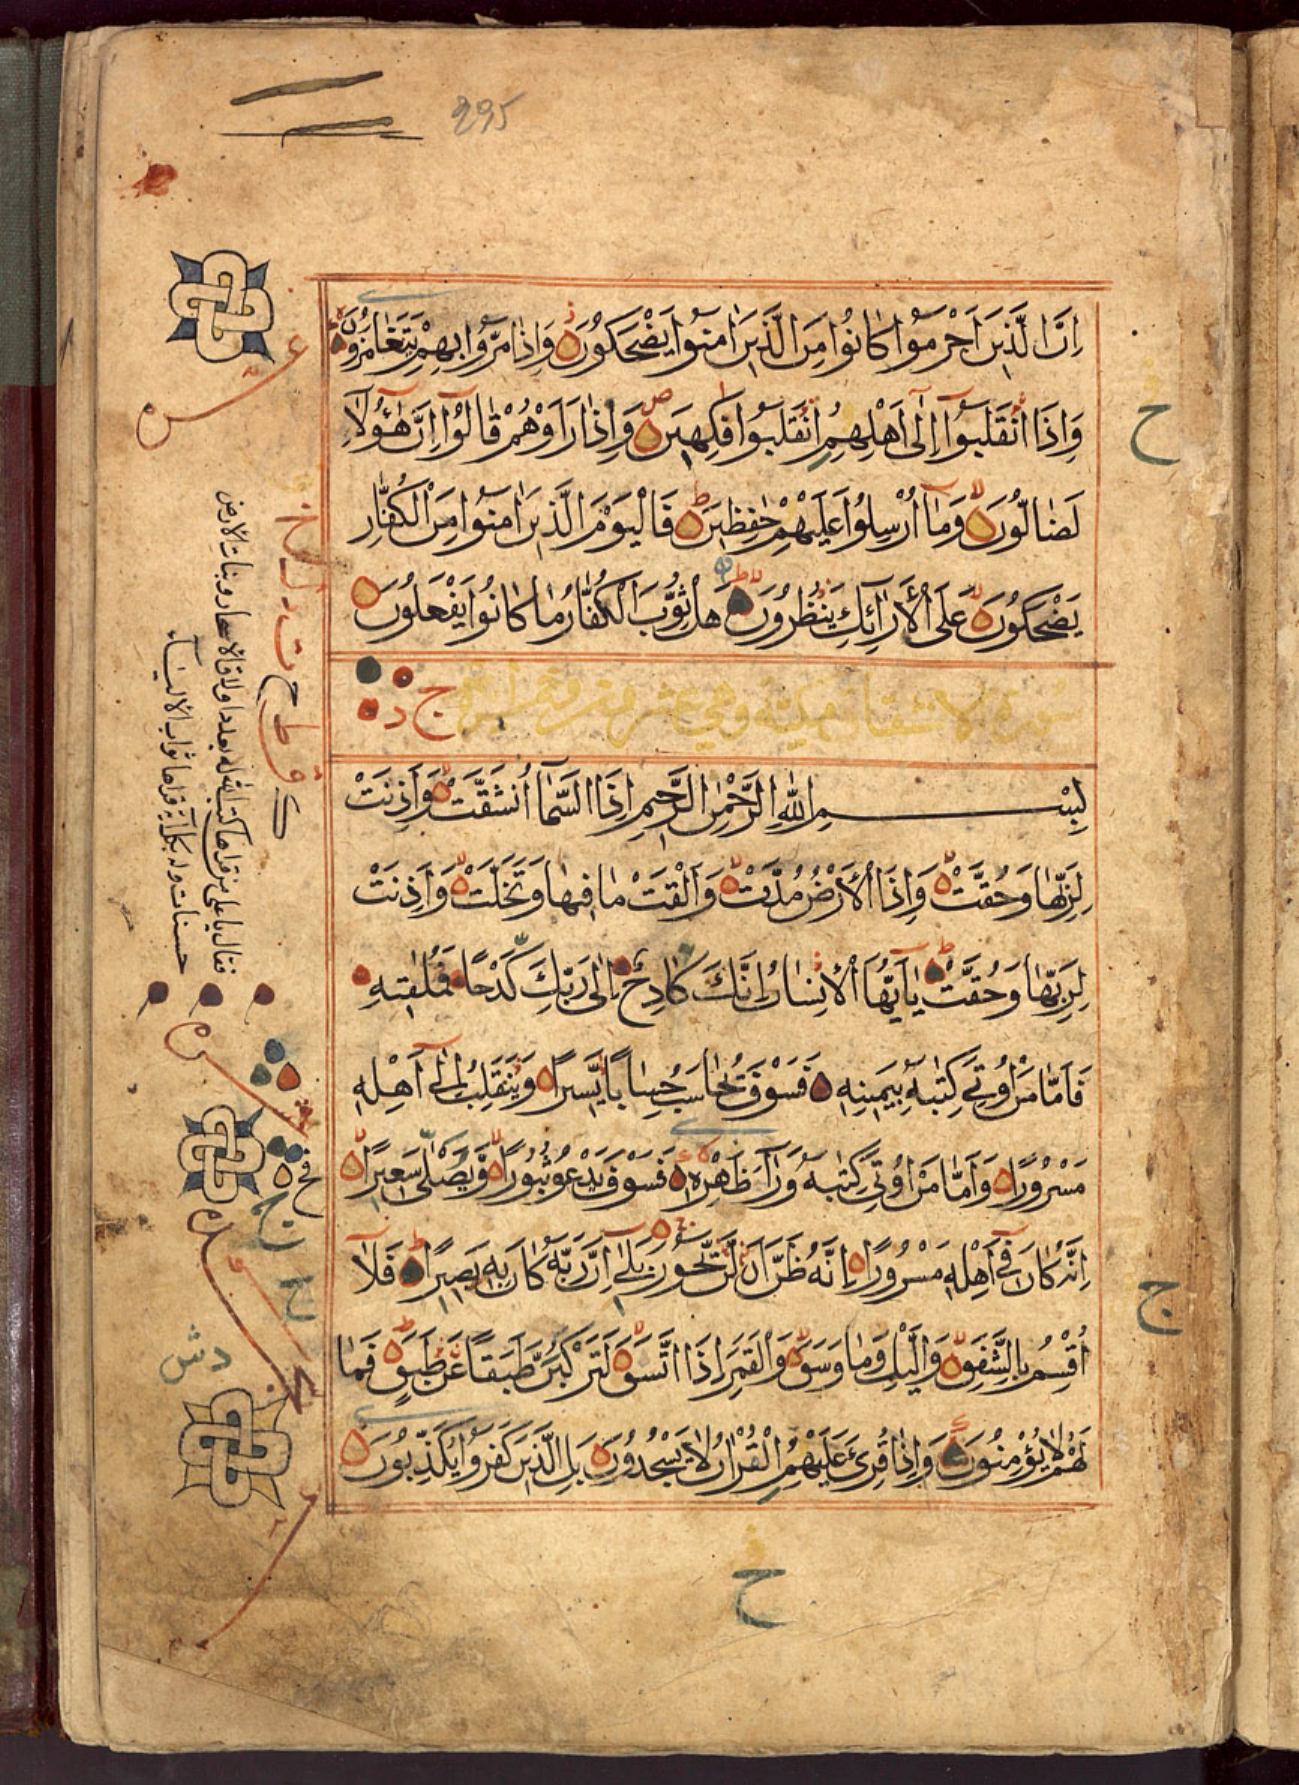 295
اِنَّ الَّذِينَ اَجْرَمُوا كَانُوا مِنَ الَّذِينَ اٰمَنُوا يَضْحَكُونَ وَاِذَا مَرُّوا بِهِمْ يَتَغَامَزُونَ
وَاِذَا انْقَلَبُوا اِلٰى اَهْلِهِمُ انْقَلَبُوا فَكِهِينَ وَاِذَا رَاَوْهُمْ قَالُوا اِنَّ هٰؤُلَاءِ
لَضَالُّونَ وَمَا اُرْسِلُوا عَلَيْهِمْ حٰفِظِينَ فَالْيَوْمَ الَّذِينَ اٰمَنُوا مِنَ الْكُفَّارِ
يَضْحَكُونَ عَلَى الْاَرَائِكِ يَنْظُرُونَ هَلْ ثُوِّبَ الْكُفَّارُ مَا كَانُوا يَفْعَلُونَ
سورة الانشقاق مكية وهي عشرون
بِسْمِ اللّٰهِ الرَّحْمٰنِ الرَّحِيمِ اِذَا السَّمَاءُ انْشَقَّتْ وَاَذِنَتْ
لِرَبِّهَا وَحُقَّتْ وَاِذَا الْاَرْضُ مُدَّتْ وَاَلْقَتْ مَا فِيهَا وَتَخَلَّتْ وَاَذِنَتْ
لِرَبِّهَا وَحُقَّتْ يَا اَيُّهَا الْاِنْسَانُ اِنَّكَ كَادِحٌ اِلٰى رَبِّكَ كَدْحًا فَمُلٰقِيهِ
فَاَمَّا مَنْ اُوتِيَ كِتٰبَهُ بِيَمِينِهِ فَسَوْفَ يُحَاسَبُ حِسَابًا يَسِيرًا وَيَنْقَلِبُ اِلٰى اَهْلِهِ
مَسْرُورًا وَاَمَّا مَنْ اُوتِيَ كِتٰبَهُ وَرَاءَ ظَهْرِهِ فَسَوْفَ يَدْعُو ثُبُورًا وَيَصْلٰى سَعِيرًا
اِنَّهُ كَانَ فِي اَهْلِهِ مَسْرُورًا اِنَّهُ ظَنَّ اَنْ لَنْ يَحُورَ بَلٰى اِنَّ رَبَّهُ كَانَ بِهِ بَصِيرًا فَلَا
اُقْسِمُ بِالشَّفَقِ وَالَّيْلِ وَمَا وَسَقَ وَالْقَمَرِ اِذَا اتَّسَقَ لَتَرْكَبُنَّ طَبَقًا عَنْ طَبَقٍ فَمَا
لَهُمْ لَا يُؤْمِنُونَ وَاِذَا قُرِئَ عَلَيْهِمُ الْقُرْاٰنُ لَا يَسْجُدُونَ بَلِ الَّذِينَ كَفَرُوا يُكَذِّبُونَ
فقال يا علي من قراها كتب الله له بعدد اوراق الاشجار ونبات الارض
حسنات وله بكل آية قراها ثواب
ح
ج
ح
دش